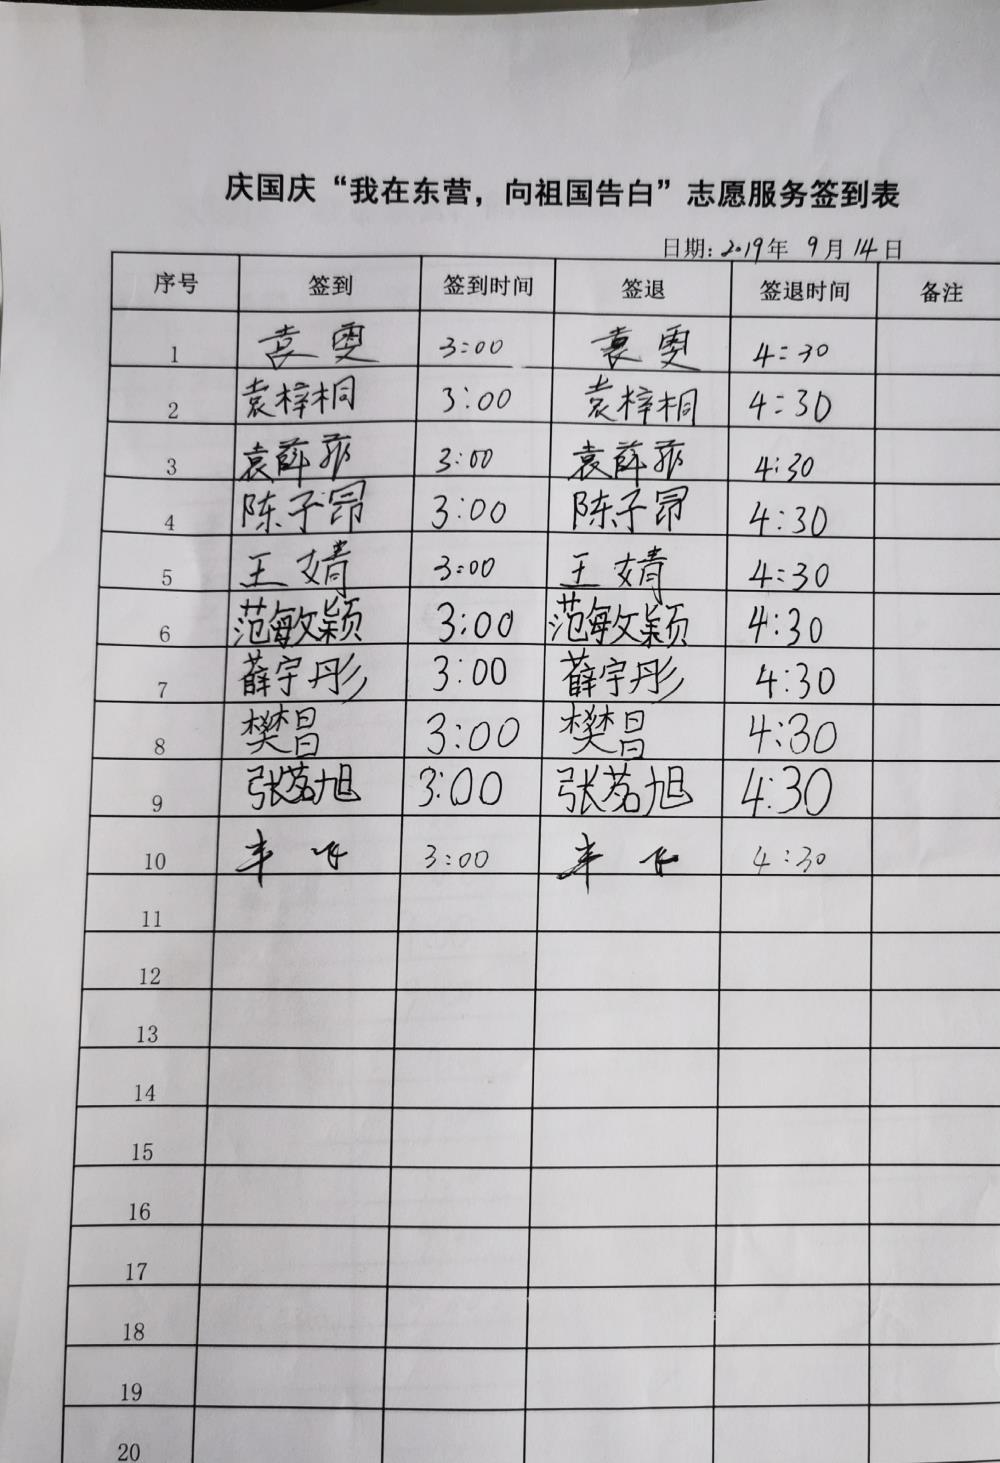 庆国庆“我在东营，向祖国告白”志愿服务签到表
日期：2019年 9月14日
序号 签到 签到时间 签退 签退时间 备注
1 袁雯 3:00 袁雯 4:30
2 袁梓桐 3:00 袁梓桐 4:30
3 袁薛 3:00 袁薛 4:30
4 陈子昂 3:00 陈子昂 4:30
5 王婧 3:00 王婧 4:30
6 范敏颖 3:00 范敏颖 4:30
7 薛宇彤 3:00 薛宇彤 4:30
8 樊昌 3:00 樊昌 4:30
9 张茗旭 3:00 张茗旭 4:30
10 3:00 4:30
11
12
13
14
15
16
17
18
19
20